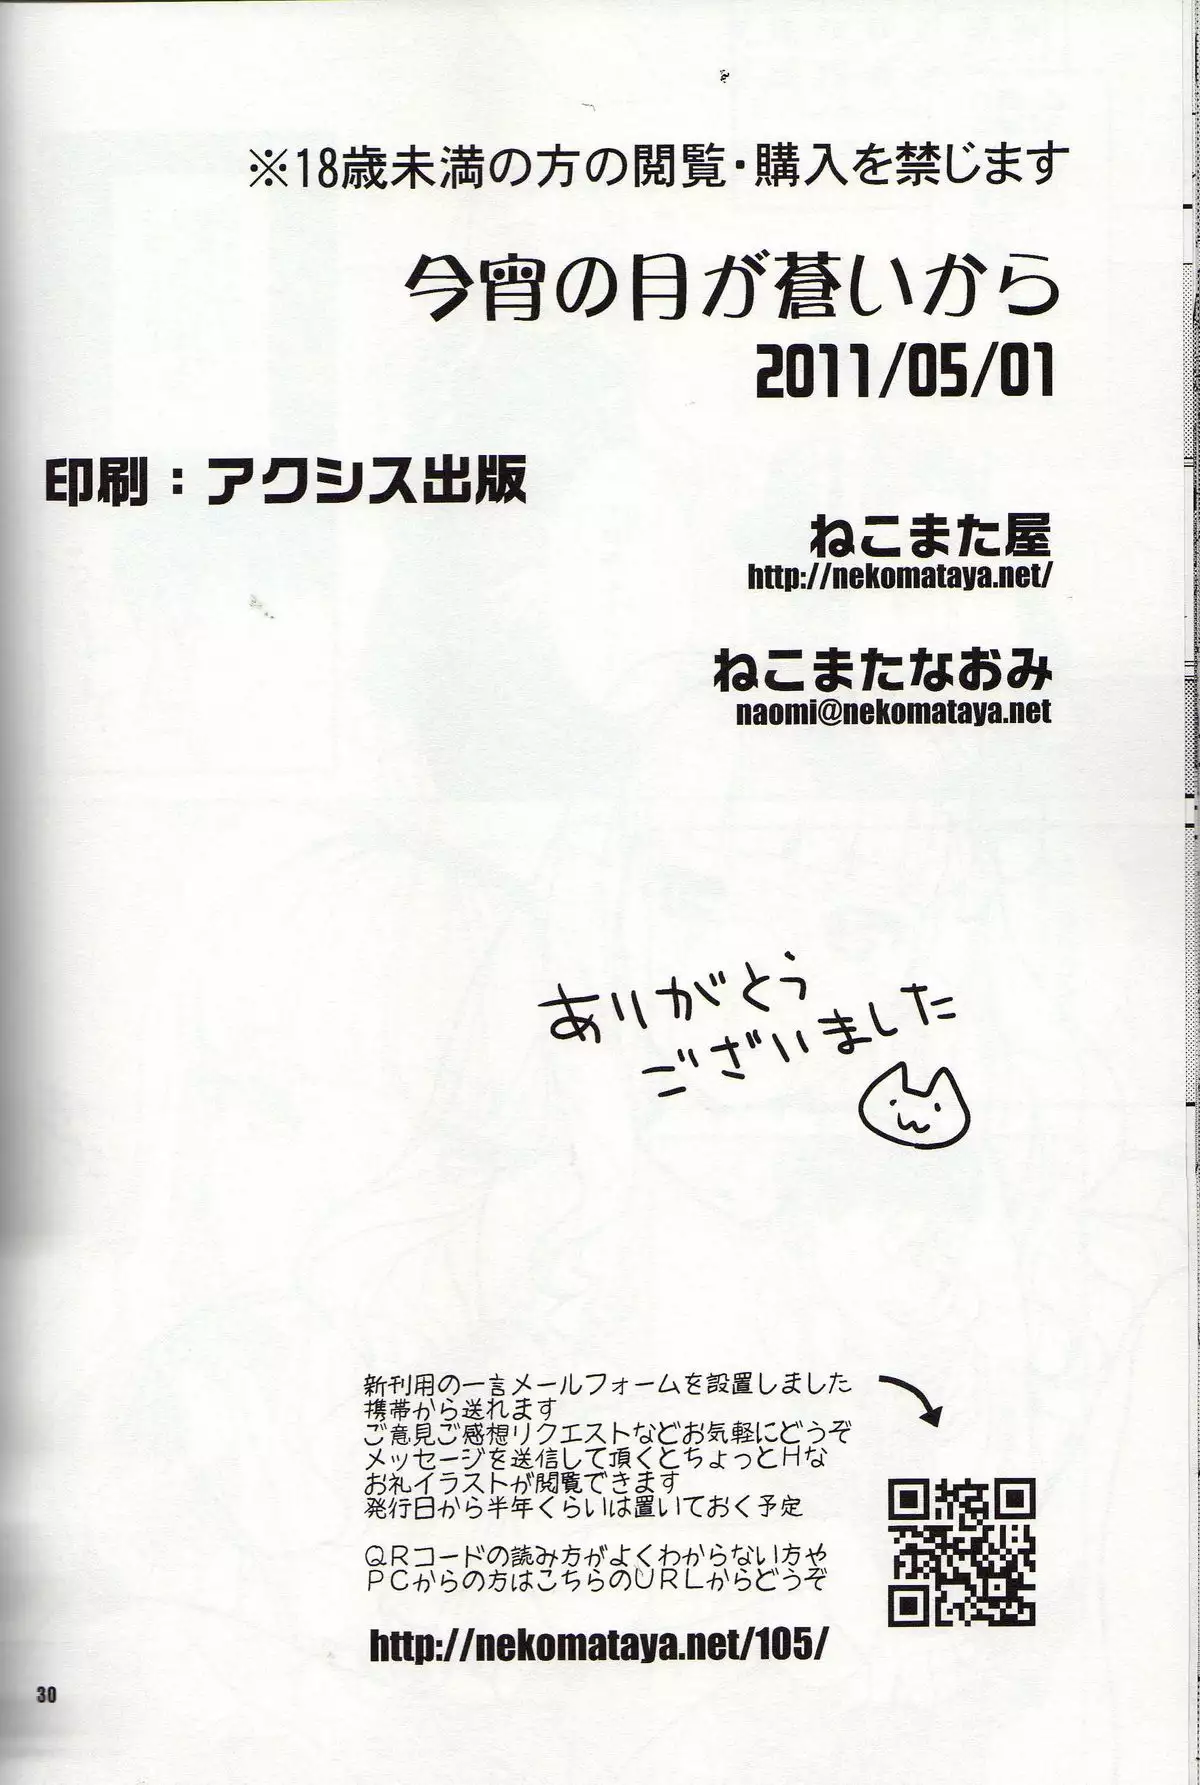 ※18歳未満の方の閲覧・購入を禁じます
今宵の月が蒼いから
2011/05/01
印刷：アクシス出版
ねこまた屋
http://nekomataya.net/
ねこまたなおみ
naomi@nekomataya.net
ありがとう
ございました
新刊用の一言メールフォームを設置しました
携帯から送れます
ご意見ご感想リクエストなどお気軽にどうぞ
メッセージを送信して頂くとちょっとＨな
お礼イラストが閲覧できます
発行日から半年くらいは置いておく予定
ＱＲコードの読み方がよくわからない方や
ＰＣからの方はこちらのＵＲＬからどうぞ
http://nekomataya.net/105/
30